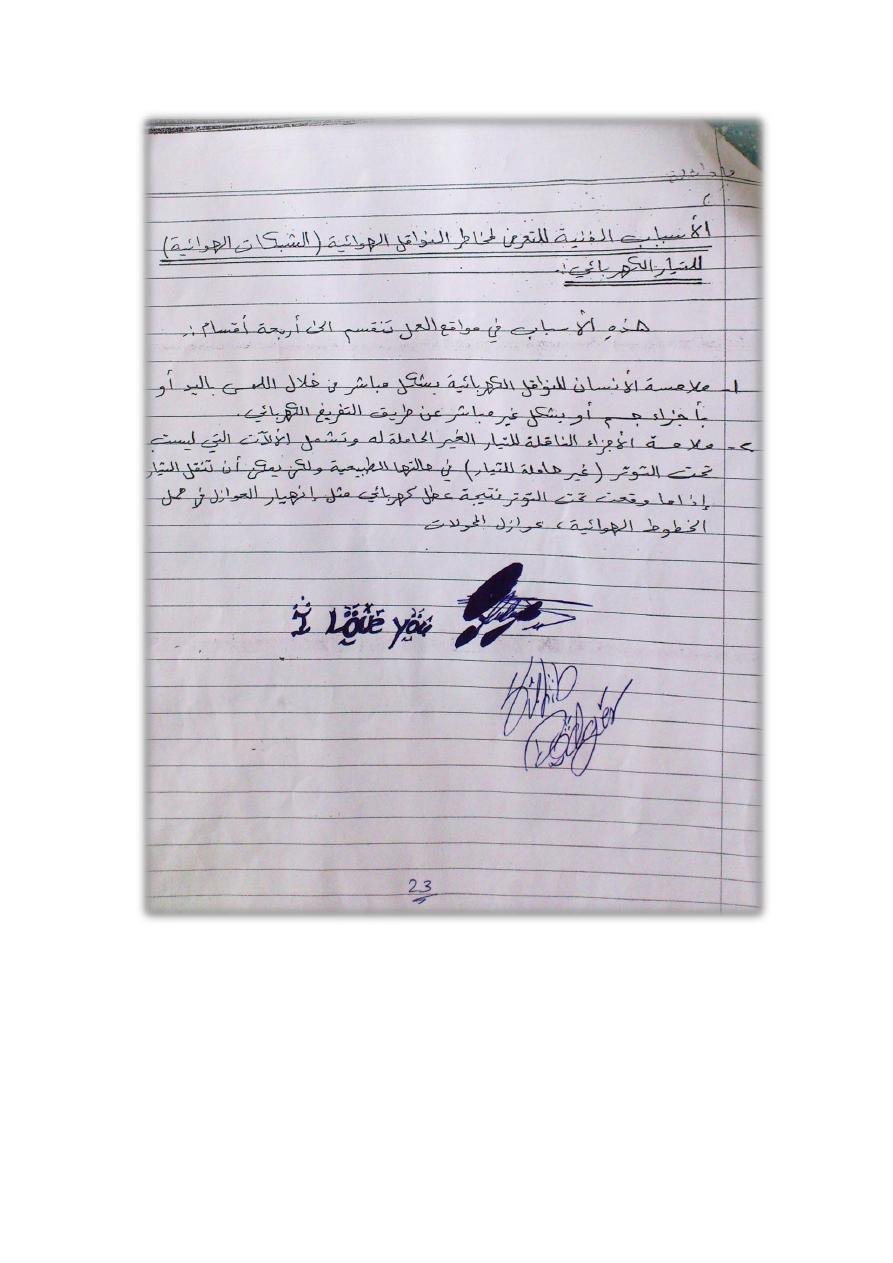 الأسباب الفنية للتعرض لمخاطر النواقل الهوائية (الشبكات الهوائية)
للتيار الكهربائي :.
هذهِ الأسباب في مواقع العمل تنقسم الى أربعة أقسام :.
1- ملامسة الأنسان للنواقل الكهربائية بشكل مباشر من خلال اللمس باليد أو
بأجزاء جسم أو بشكل غير مباشر عن طريق التفريغ الكهربائي.
2- ملامسة الأجزاء الناقلة للتيار الغير الحاملة له وتشمل الألآت التي ليست
تحت التوتر (غير حاملة للتيار) في حالتها الطبيعية ولكن يمكن أن تنقل التيار
إذا ما وقعت تحت التوتر نتيجة عطل كهربائي مثل إنهيار العوازل في
الخطوط الهوائية، عوازل المحولات
I Love you
23